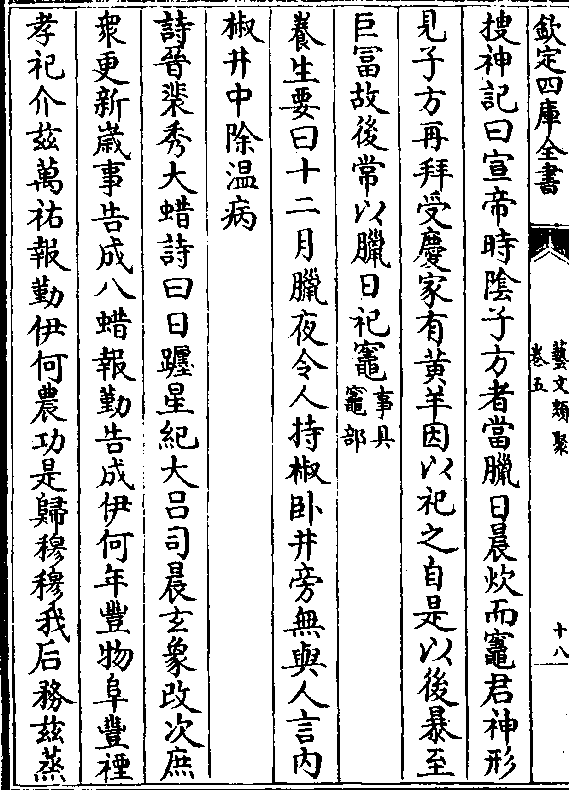 欽定四庫全書
藝文類聚
卷五
十八
搜神記曰宣帝時陰子方者當臘日晨炊而竈君神形
見子方再拜受慶家有黃羊因以祀之自是以後暴至
巨冨故後常以臘日祀竈事具竈部
養生要曰十二月臘夜令人持椒卧井旁無與人言内
椒井中除温病
詩晉裴秀大蜡詩曰日躔星紀大呂司晨玄象改次庶
衆更新歲事告成八蜡報勤告成伊何年豐物阜豐禋
孝祀介兹萬祐報勤伊何農功是歸穆穆我后務兹蒸